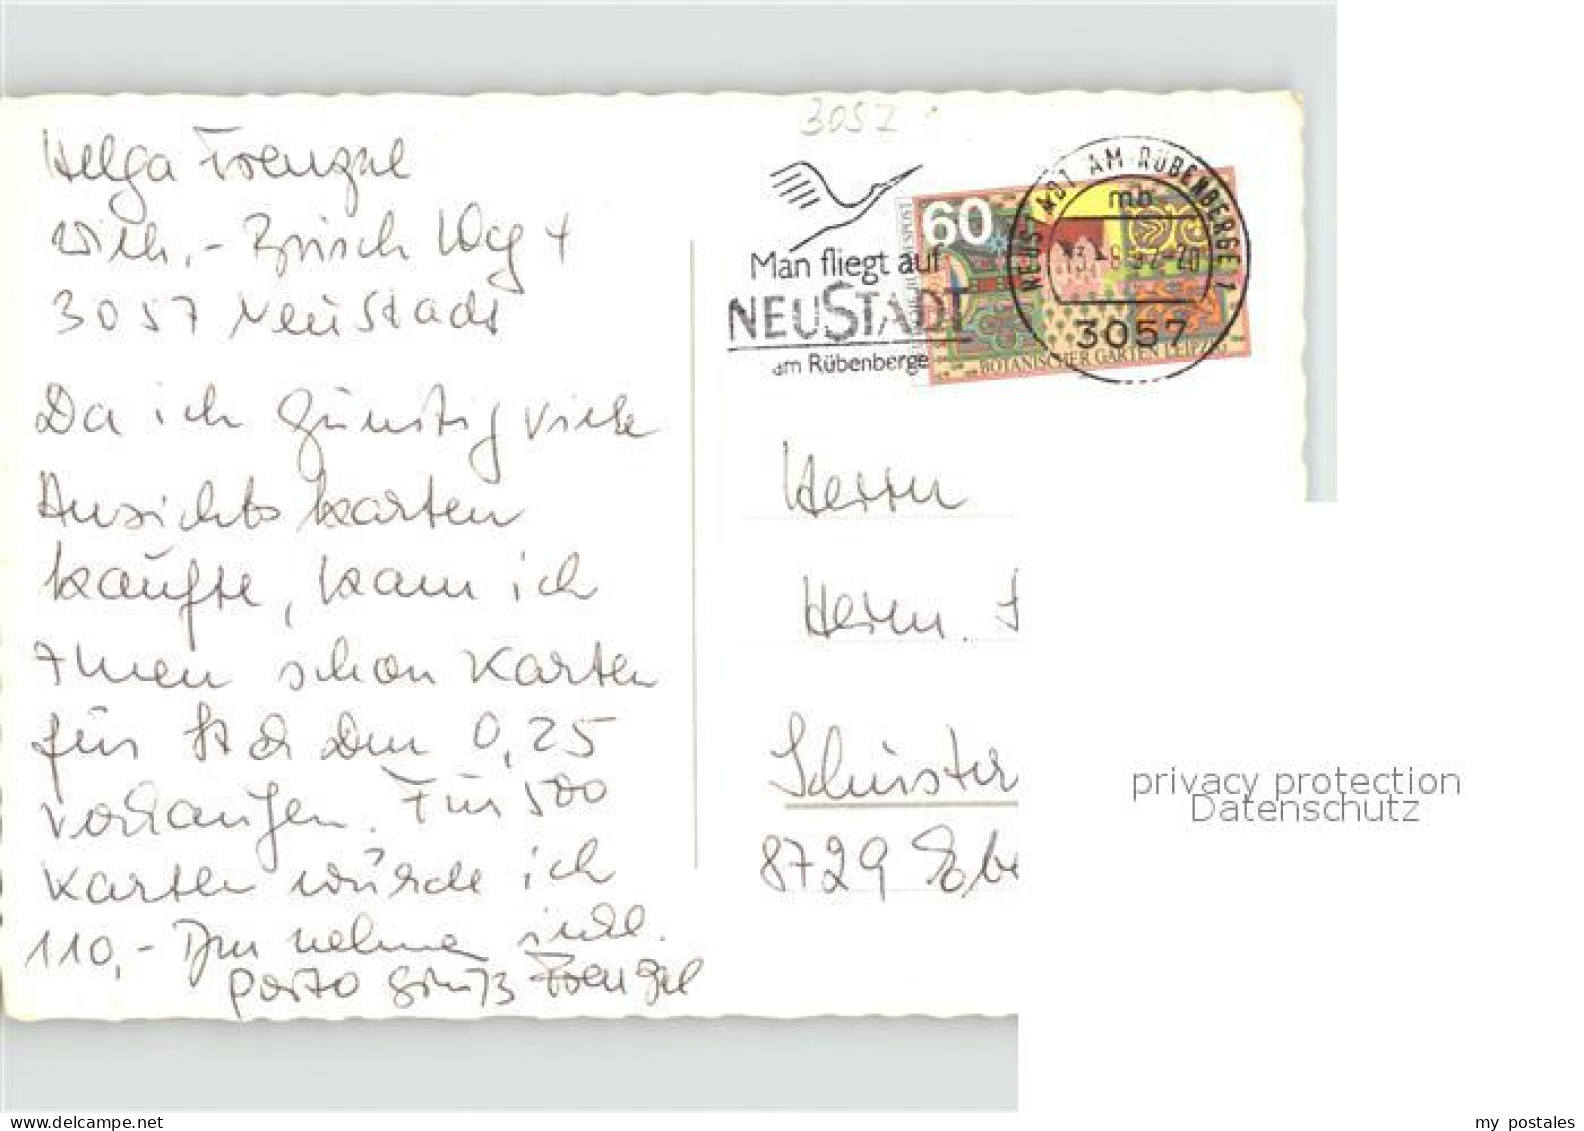 Helga Frenzel
3057
Wilh.- Busch Weg 4
3057 Neustadt
Da ich günstig viele
Ansichtskarten
kaufte, kann ich
Ihnen schon Karten
für Stck DM 0,25
verkaufen. Für 500
Karten würde ich
110,- DM nehmen incl.
Porto Gruß Frenzel
Man fliegt auf
NEUSTADT
am Rübenberge
60
BOTANISCHER GARTEN LEIPZIG
NEUSTADT AM RÜBENBERGE 1
mb
3057
Herrn
Herrn.
8729 Ebe
privacy protection
Datenschutz
my postales